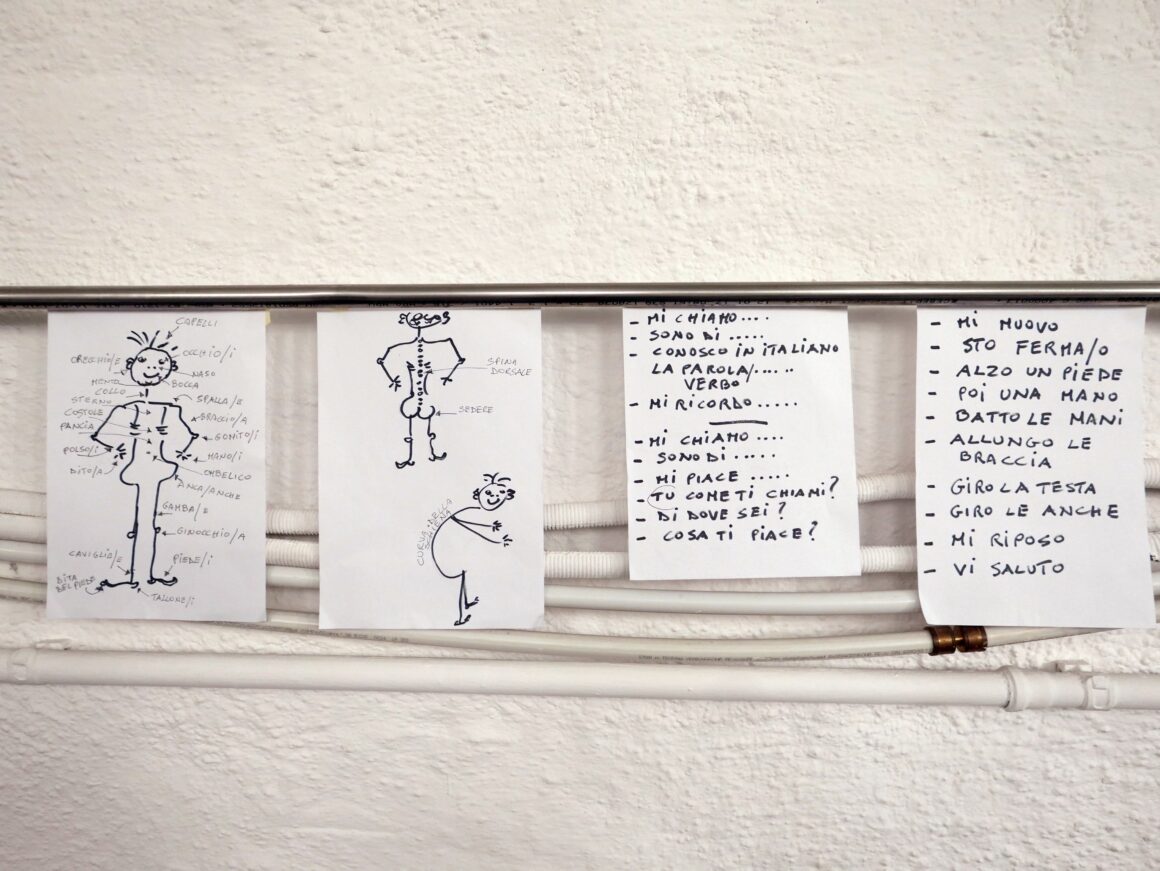 CAPELLI
ORECCHIO/E
OCCHIO/I
NASO
MENTO
BOCCA
COLLO
STERNO
SPALLA/E
COSTOLE
BRACCIO/A
PANCIA
GOMITO/I
POLSO/I
MANO/I
DITO/A
OMBELICO
ANCA/ANCHE
GAMBA/E
GINOCCHIO/A
CAVIGLIA/E
PIEDE/I
DITA
DEL PIEDE
TALLONE/I
SPINA
DORSALE
SEDERE
CURVA DELLA
SCHIENA
- MI CHIAMO....
- SONO DI .....
- CONOSCO IN ITALIANO
LA PAROLA/.... ..
VERBO
- MI RICORDO.....
- MI CHIAMO ....
- SONO DI .....
- MI PIACE .....
- TU COME TI CHIAMI?
- DI DOVE SEI?
- COSA TI PIACE?
- MI MUOVO
- STO FERMA/O
- ALZO UN PIEDE
- POI UNA MANO
- BATTO LE MANI
- ALLUNGO LE
BRACCIA
- GIRO LA TESTA
- GIRO LE ANCHE
- MI RIPOSO
- VI SALUTO